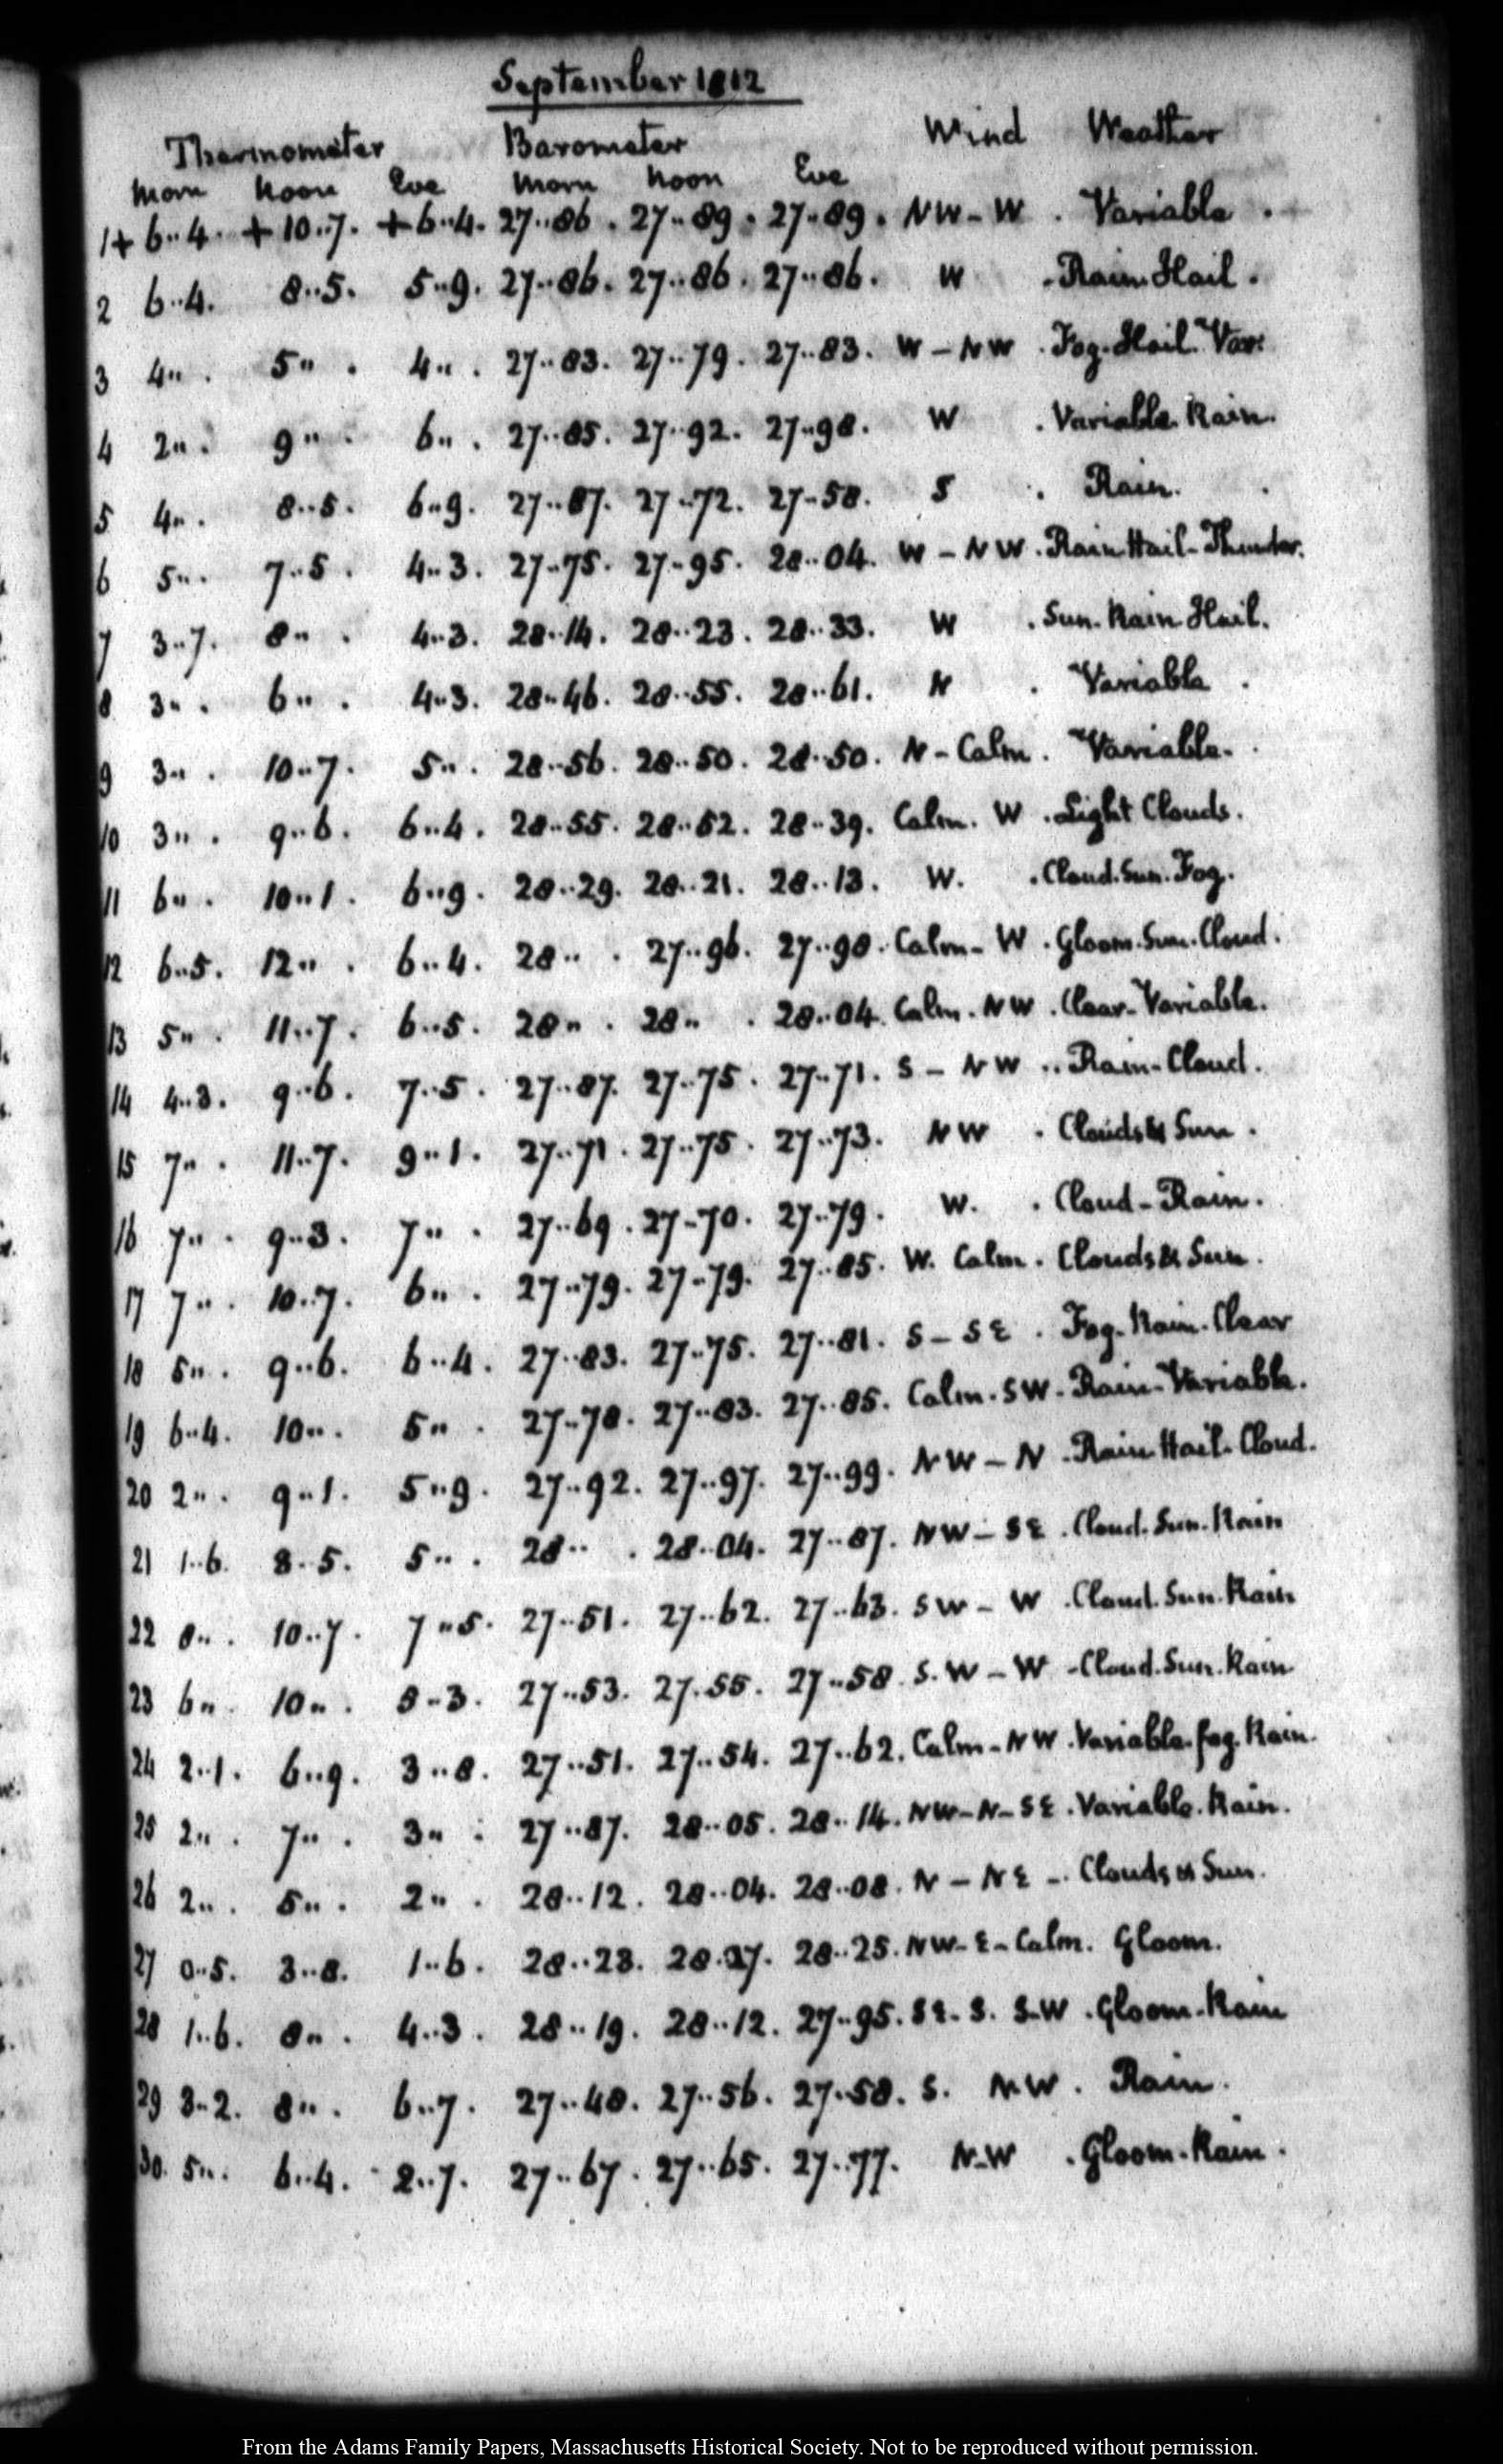 September 1812
Thermometer Barometer Wind Weather
Morn Noon Eve Morn Noon Eve
1 + 6..4. + 10..7. + 6..4. 27..86. 27..89. 27..89. NW - W. Variable.
2 6..4. 8..5. 5..9. 27..86. 27..86. 27..86. W. Rain. Hail.
3 4.. . 5.. . 4.. . 27..83. 27..79. 27..83. W - NW. Fog. Hail. Var:
4 2.. . 9.. . 6.. . 27..85. 27..92. 27..98. W. Variable. Rain.
5 4.. . 8..5. 6..9. 27..87. 27..72. 27..58. S. Rain.
6 5.. . 7..5. 4..3. 27..75. 27..95. 28..04. W - NW. Rain Hail - Thunder.
7 3..7. 8.. . 4..3. 28..14. 28..23. 28..33. W. Sun. Rain Hail.
8 3.. . 6.. . 4..3. 28..46. 28..55. 28..61. N. Variable.
9 3.. . 10..7. 5.. . 28..56. 28..50. 28..50. N - Calm. Variable.
10 3.. . 9..6. 6..4. 28..55. 28..52. 28..39. Calm. W. Light Clouds.
11 6.. . 10..1. 6..9. 28..29. 28..21. 28..13. W. Cloud. Sun. Fog.
12 6..5. 12.. . 6..4. 28.. . 27..96. 27..98. Calm - W. Gloom. Sun. Cloud.
13 5.. . 11..7. 6..5. 28.. . 28.. . 28..04. Calm. NW. Clear - Variable.
14 4..3. 9..6. 7..5. 27..87. 27..75. 27..71. S - NW. Rain - Cloud.
15 7.. . 11..7. 9..1. 27..71. 27..75. 27..73. NW. Clouds & Sun.
16 7.. . 9..3. 7.. . 27..69. 27..70. 27..79. W. Cloud - Rain.
17 7.. . 10..7. 6.. . 27..79. 27..79. 27..85. W. Calm. Clouds & Sun.
18 5.. . 9..6. 6..4. 27..83. 27..75. 27..81. S - SE. Fog. Rain. Clear
19 6..4. 10.. . 5.. . 27..78. 27..83. 27..85. Calm. SW. Rain - Variable.
20 2.. . 9..1. 5..9. 27..92. 27..97. 27..99. NW - N. Rain Hail. Cloud.
21 1..6. 8..5. 5.. . 28.. . 28..04. 27..87. NW - SE. Cloud. Sun. Rain
22 8.. . 10..7. 7..5. 27..51. 27..62. 27..63. SW - W. Cloud. Sun. Rain
23 6.. . 10.. . 5..3. 27..53. 27..55. 27..58. S.W - W - Cloud. Sun. Rain
24 2..1. 6..9. 3..8. 27..51. 27..54. 27..62. Calm - NW. Variable. fog. Rain.
25 2.. . 7.. . 3.. . 27..87. 28..05. 28..14. NW - N - SE. Variable. Rain.
26 2.. . 5.. . 2.. . 28..12. 28..04. 28..08. N - NE - Clouds & Sun.
27 0..5. 3..8. 1..6. 28..23. 28..27. 28..25. NW - E - Calm. Gloom.
28 1..6. 8.. . 4..3. 28..19. 28..12. 27..95. SE. S. S-W. Gloom. Rain
29 3..2. 8.. . 6..7. 27..48. 27..56. 27..58. S. N.W. Rain.
30. 5.. . 6..4. 2..7. 27..67. 27..65. 27..77. N-W. Gloom. Rain.
From the Adams Family Papers, Massachusetts Historical Society. Not to be reproduced without permission.